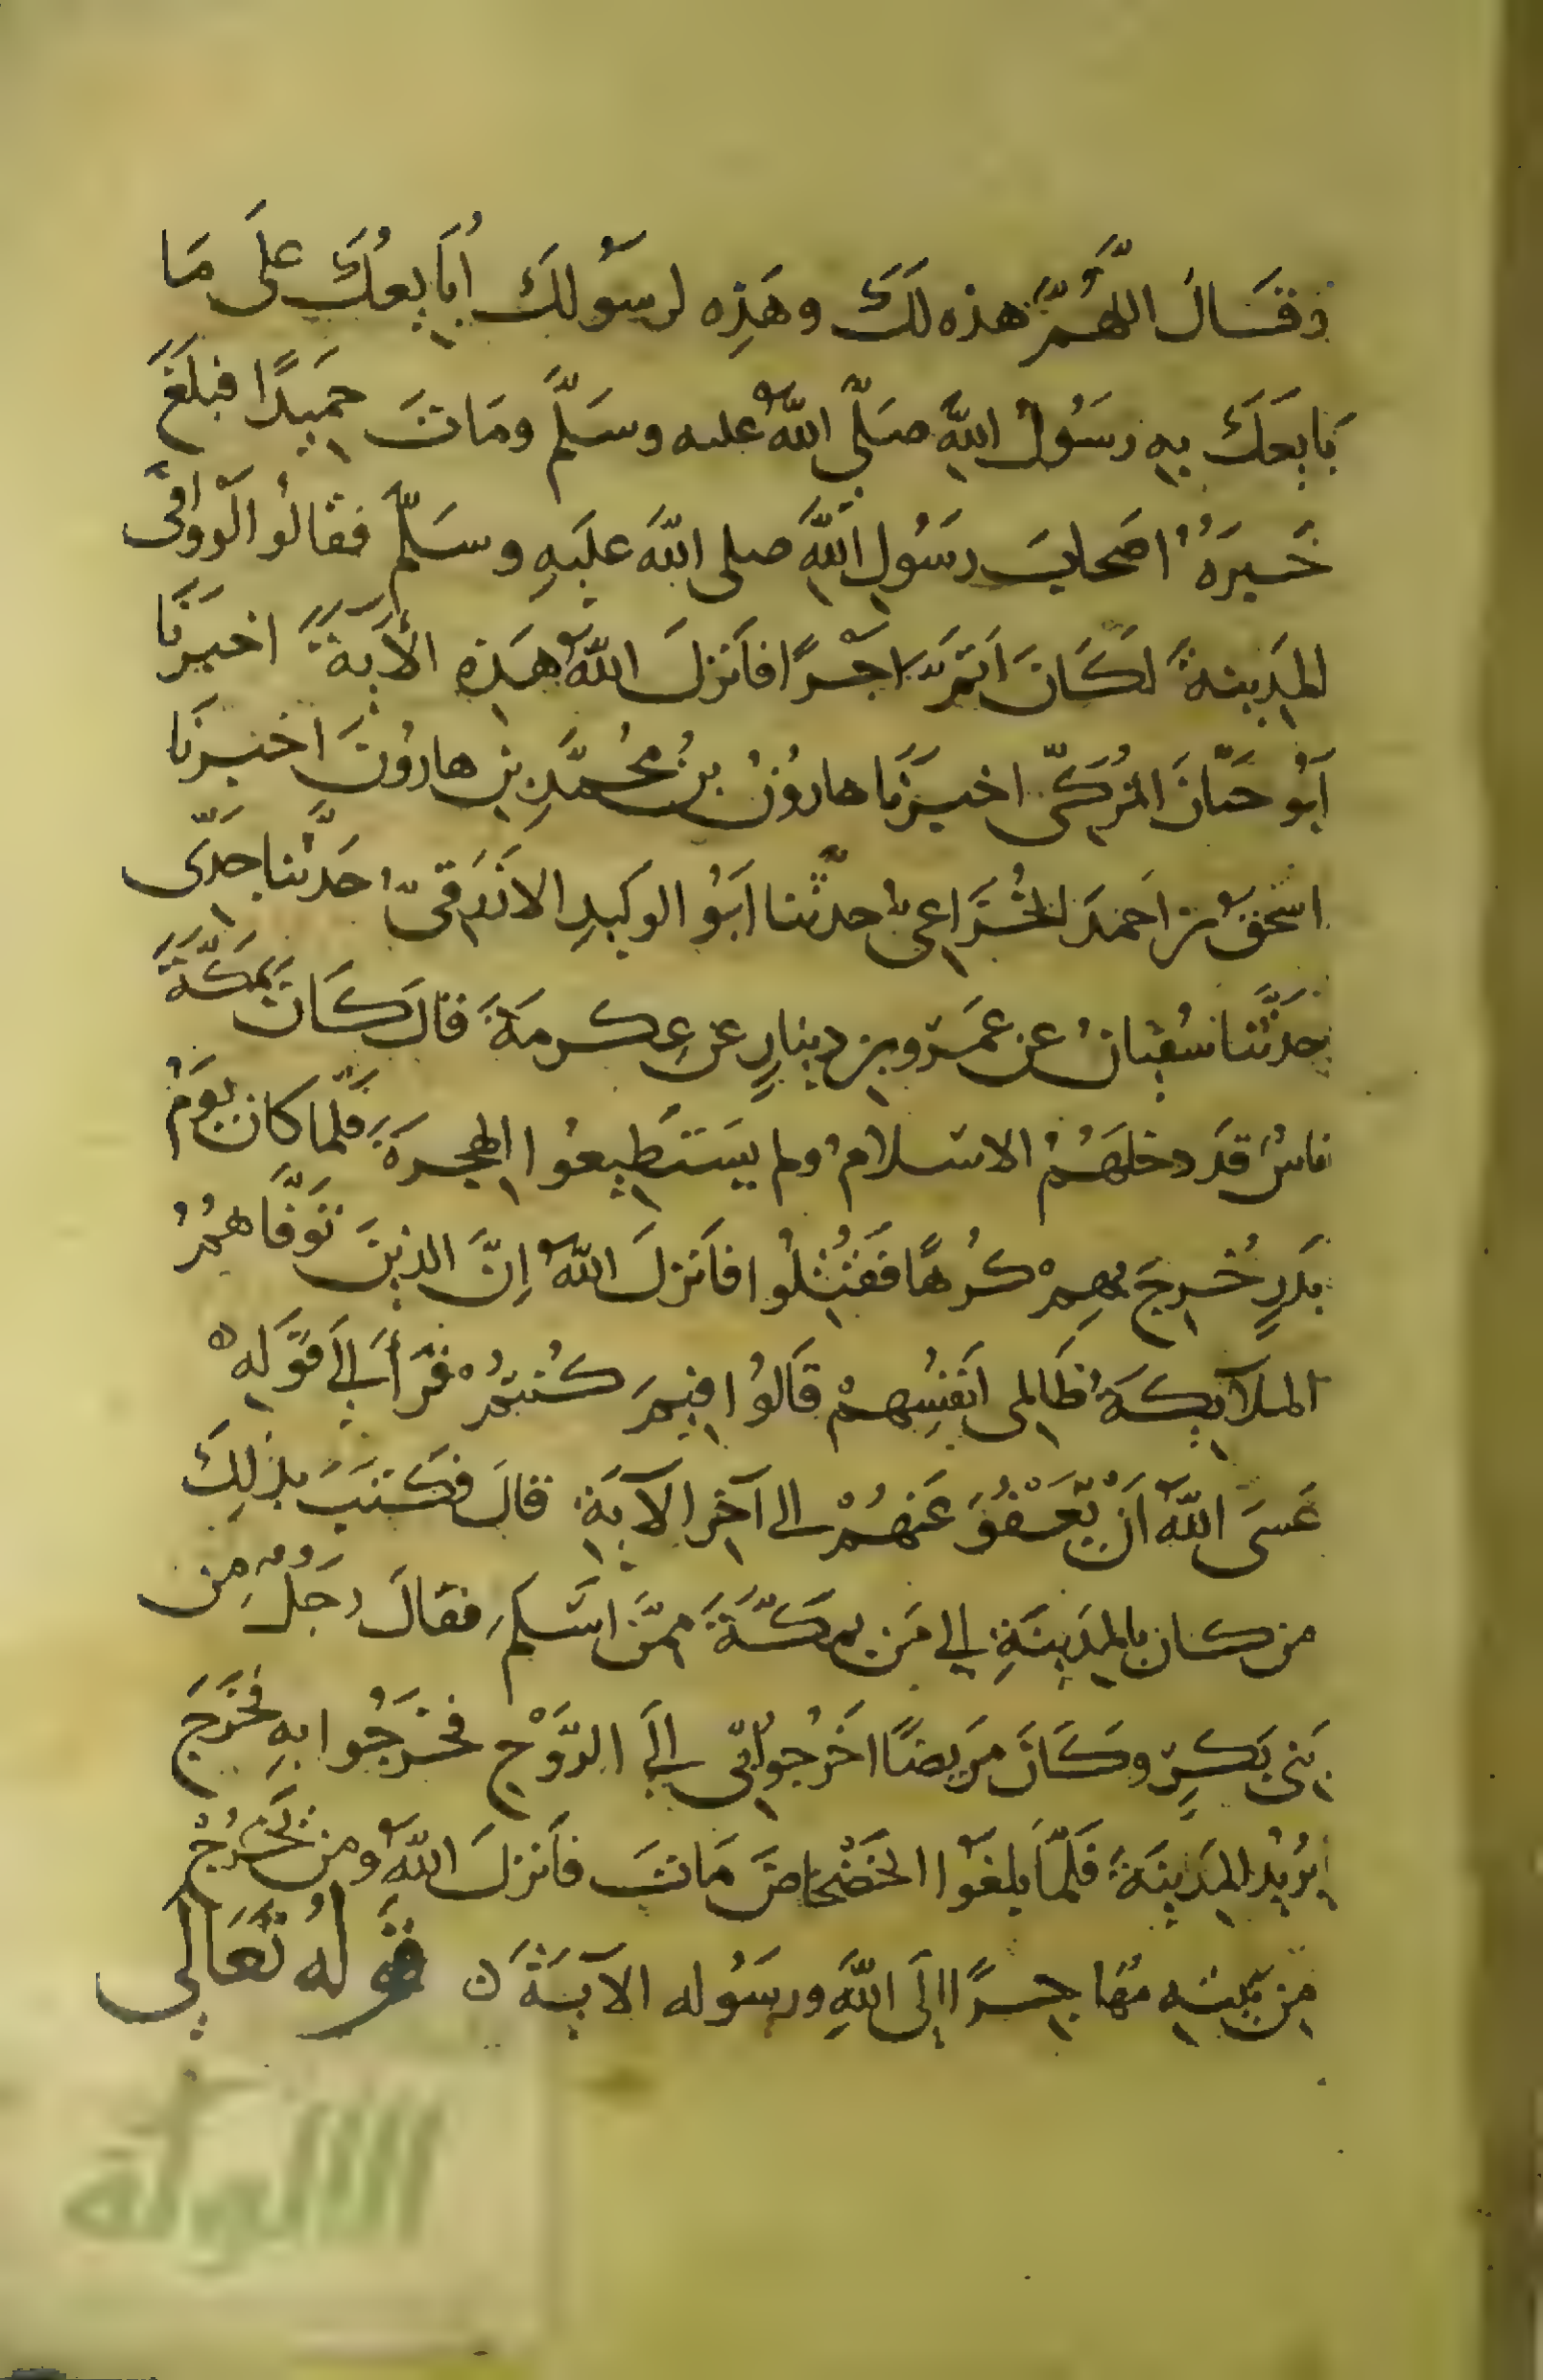 وقَالَ اللَّهُمَّ هذه لَكَ وهَذِه لرسَوُلكَ أُبَايِعُكَ عَلَى مَا
بَايعَكَ بِهِ رسَوُلُ اللهِ صَلَّى اللهُ عليه وسَلَّم ومَاتَ حَمِيدًا فبَلَغَ
خَبَرُهُ اصَحابَ رسَوُلِ اللهِ صلى اللهَ عليَهِ وسَلَّم فقالُوا لَوْ وَافَى
المدِينةَ لكَانَ اَتَمَّ اجْرًا فاَنزلَ اللهُ هَذِهِ الآيةَ اخبَرَنَا
اَبُو حسَّانَ المُزكّىِ اخبَرَنَا هارُونُ بنُ محُمَّدِ بنِ هارُونَ اخبرَنَا
اسْحقُ بن اَحمدَ الخُزَاعِىُّ حدثَّنا اَبوُ الوَليدِ الازَرَقىُّ حَدَّثنا جَدّىِ
حَدَّثَنا سُفيَانُ عن عَمَرْو بنِ دِينارٍ عن عِكرمَةَ قال كَانَ بمَكَّةَ
ناسُ قدَ دخلَهُمُ الاسْلامُ ولم يَستَطِيعُوا الهِجرَةَ فَلّما كان يَوَمُ
بَدرٍ خُرِجَ بِهِمْ كُرهًا فَقُتِلُوا فاَنزلَ اللهُ اِنَّ الذينَ تَوَفَّاهُمُ
الملآيِكَةُ ظَالِمى اَنفُسِهمْ قَالوُا فيِمَ كُنتمُ ْ قرَأَ إلىَ قَوَلِه
عَسَى اللهُ اَنْ يَعْفُوَ عَنهُمْ إلى آخِر الآيَةِ قالَ فكَتبَ بذَلِكَ
من كان بالمدِينَةِ إلى مَن بمكَّةَ ممَّن اسَْلَم فقَالَ رَجلُ مِن
بَنى بَكرٍ وكَانَ مَرَيضًا اخَرُجوُا بىِ إلىَ الرَّوْحِ فخرَجُوا بهِ فخَرَجَ
يُريُد المدِينَةَ فَلمَّا بَلغَوا الحَصْحَاصَ مَاتَ فاَنزلَ اللهُ ومن يَّخَرُجْ
مِن بَيتِهِ مُهَاجِرًا إلَى اللهِ ورسَوُله الآيةَ ن قَولُهُ تَعَالَى
الألوكة